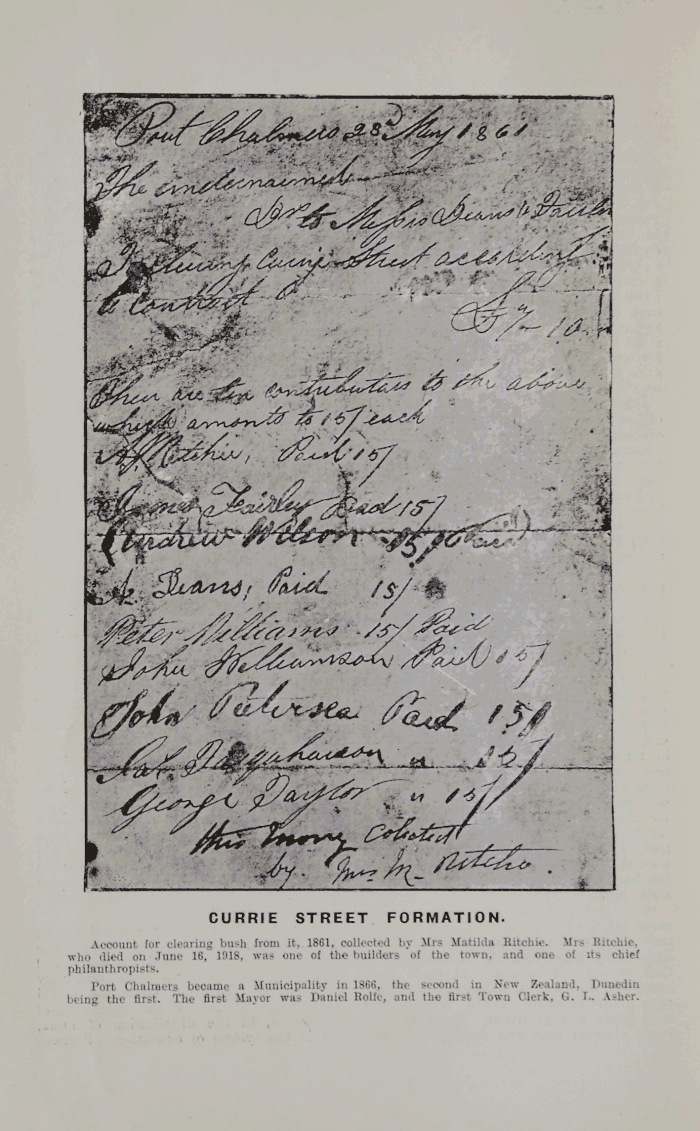 Port Chalmers 28th May 1861
The undernamed
Drs to Messrs Deans &
To clearing Currie Street according
to contract
£7 - 10
Their are ten contributars to the above
which amonts to 15/ each
A. Ritchie, Paid 15/
James Fairley Paid 15/
Andrew Wilson 15/ Paid
A. Deans, Paid 15/
Peter Williams 15/ Paid
John Williamson Paid 15/
John Petersea Paid 15/
Farquharson " 15/
George Taylor " 15/
this mony Colected
by Mrs M. Ritchie.
CURRIE STREET FORMATION.
Account for clearing bush from it, 1861, collected by Mrs Matilda Ritchie. Mrs Ritchie,
who died on June 16, 1918, was one of the builders of the town, and one of its chief
philanthropists.
Port Chalmers became a Municipality in 1866, the second in New Zealand, Dunedin
being the first. The first Mayor was Daniel Rolfe, and the first Town Clerk, G. L. Asher.